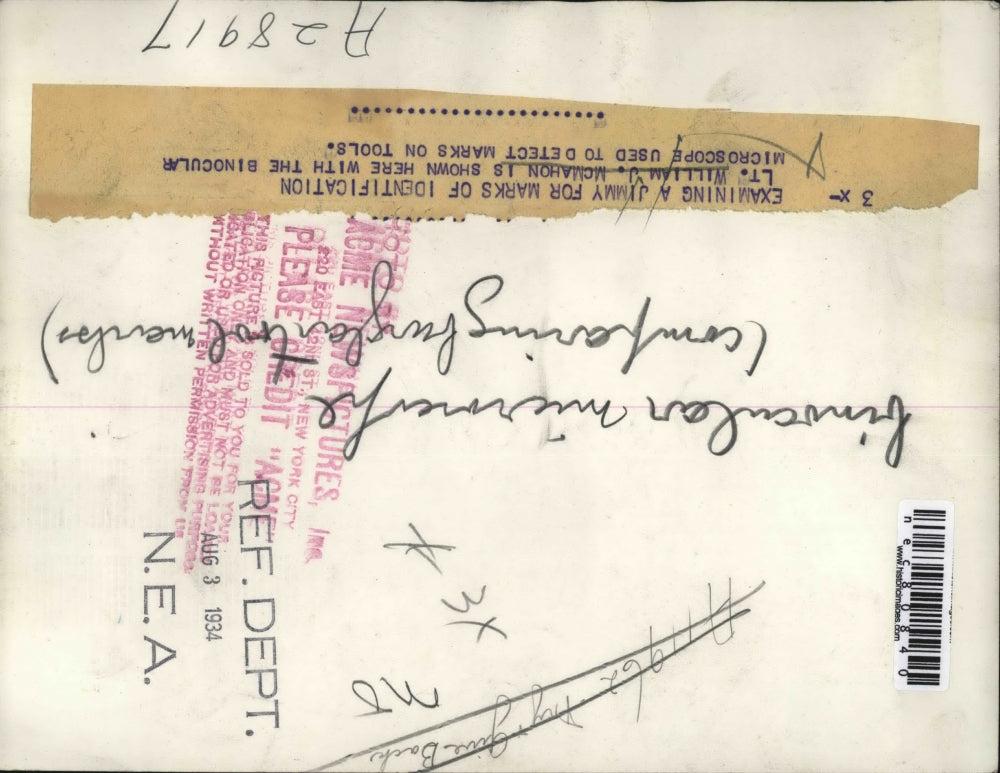 A28917
3 x-
EXAMINING A JIMMY FOR MARKS OF IDENTIFICATION
LT. WILLIAM J. McMAHON IS SHOWN HERE WITH THE BINOCULAR
MICROSCOPE USED TO DETECT MARKS ON TOOLS.
binocular microscope
(comparing burglar tool marks)
ACME NEWSPICTURES, Inc.
220 EAST 42ND ST., NEW YORK CITY
PLEASE CREDIT "ACME"
THIS PICTURE IS SOLD TO YOU FOR YOUR
PUBLICATION ONLY AND MUST NOT BE LOANED
OR USED FOR ADVERTISING PURPOSES
WITHOUT WRITTEN PERMISSION FROM US
REF. DEPT.
AUG 3 1934
N.E.A.
3x
Give Back
www.historicimages.com
nec80840